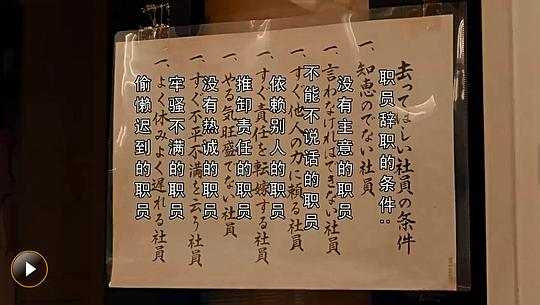 去ってほしい社員の条件
职员辞职的条件：
一、知恵のでない社員
没有主意的职员
一、言わなければできない社員
不能不说话的职员
一、すぐ他人の力に頼る社員
依赖别人的职员
一、すぐ責任を転嫁する社員
推卸责任的职员
一、やる気旺盛でない社員
没有热诚的职员
一、すぐ不平不満を云う社員
牢骚不满的职员
一、よく休みよく遅れる社員
偷懒迟到的职员